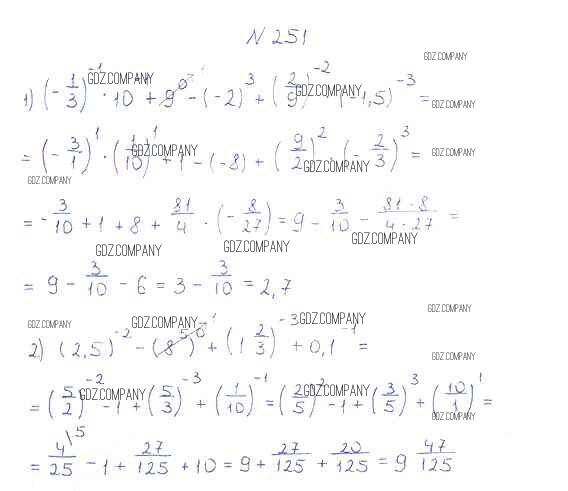 N 251
GDZ.COMPANY
1) (-1/3)^-1 · 10^-1 + 9^0 - (-2)^3 + (2/9)^-2 · (-1,5)^-3 =
GDZ.COMPANY GDZ.COMPANY GDZ.COMPANY
= (-3/1)^1 · (1/10)^1 + 1 - (-8) + (9/2)^2 · (-2/3)^3 =
GDZ.COMPANY GDZ.COMPANY GDZ.COMPANY
GDZ.COMPANY
= -3/10 + 1 + 8 + 81/4 · (-8/27) = 9 - 3/10 - 81·8/4·27 =
GDZ.COMPANY GDZ.COMPANY GDZ.COMPANY
= 9 - 3/10 - 6 = 3 - 3/10 = 2,7
GDZ.COMPANY
GDZ.COMPANY GDZ.COMPANY GDZ.COMPANY
2) (2,5)^-2 - (8^5)^0 + (1 2/3)^-3 + 0,1^-1 =
GDZ.COMPANY
= (5/2)^-2 - 1 + (5/3)^-3 + (1/10)^-1 = (2/5)^2 - 1 + (3/5)^3 + (10/1)^1 =
GDZ.COMPANY GDZ.COMPANY
GDZ.COMPANY
= 4/25 \5 - 1 + 27/125 + 10 = 9 + 27/125 + 20/125 = 9 47/125